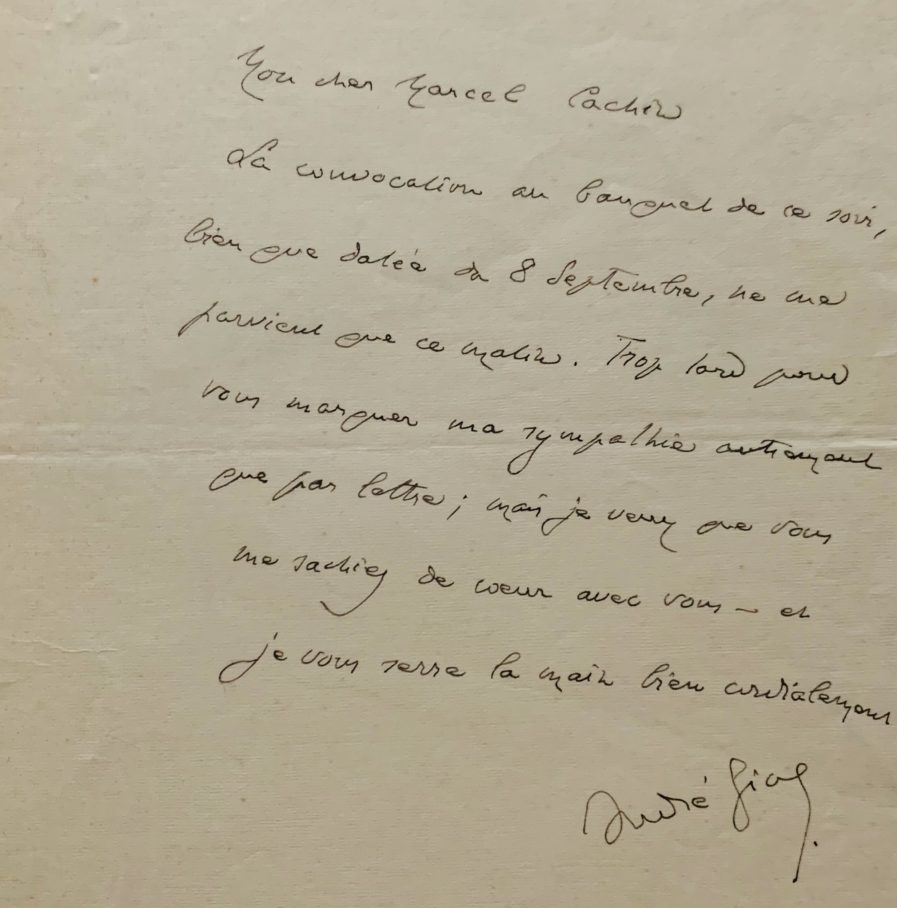 Mon cher Marcel Cachin
La convocation au banquet de ce soir,
bien que datée du 8 Septembre, ne me
parvient que ce matin. Trop tard pour
vous marquer ma sympathie autrement
que par lettre ; mais je veux que vous
me sachiez de cœur avec vous — et
je vous serre la main bien cordialement
André Gide.